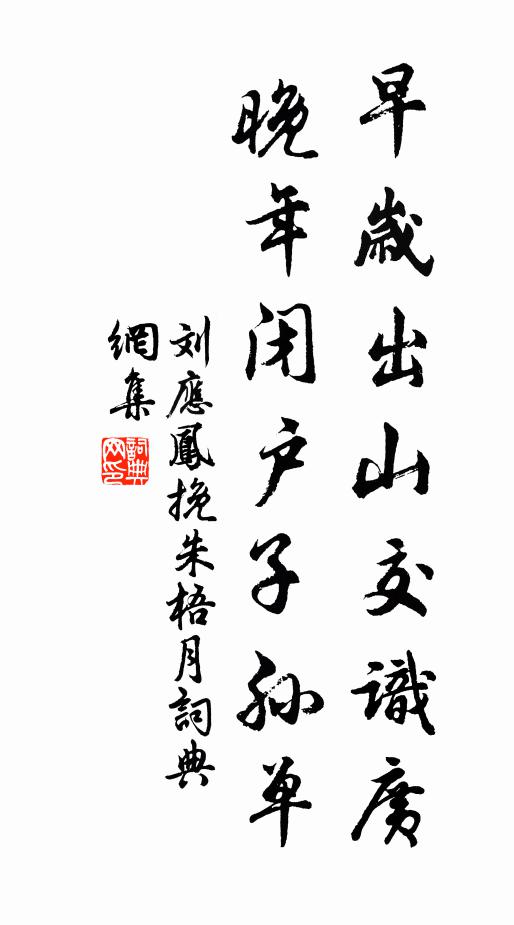 早歲出山交識廣
晚年闭户子孙单
刘應鳳挽朱梧月詞典
網集
詞典
网印